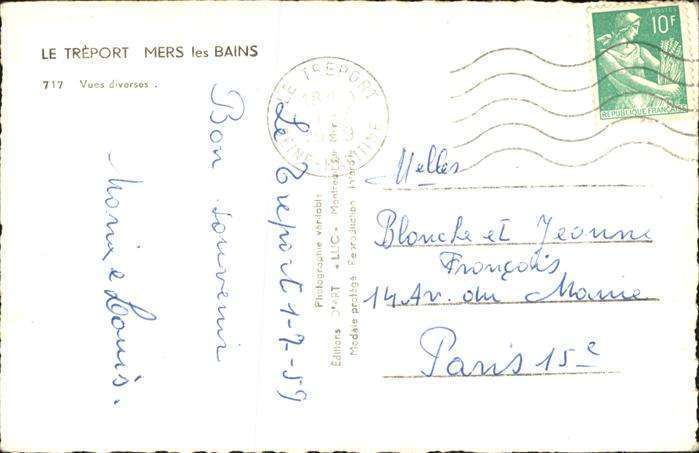 LE TRÉPORT MERS les BAINS
717 Vues diverses.
Bon souvenir
Maria e Louis.
Le Treport 1-7-59
Photographie véritable
Editions D'ART "LUC"
Modèle protégé Reproduction interdite
LE TREPORT
SEINE-MARITIME
POSTES
10F
REPUBLIQUE FRANÇAISE
Melles
Blanche et Jeanne
François
14 Av. du Maine
Paris 15e